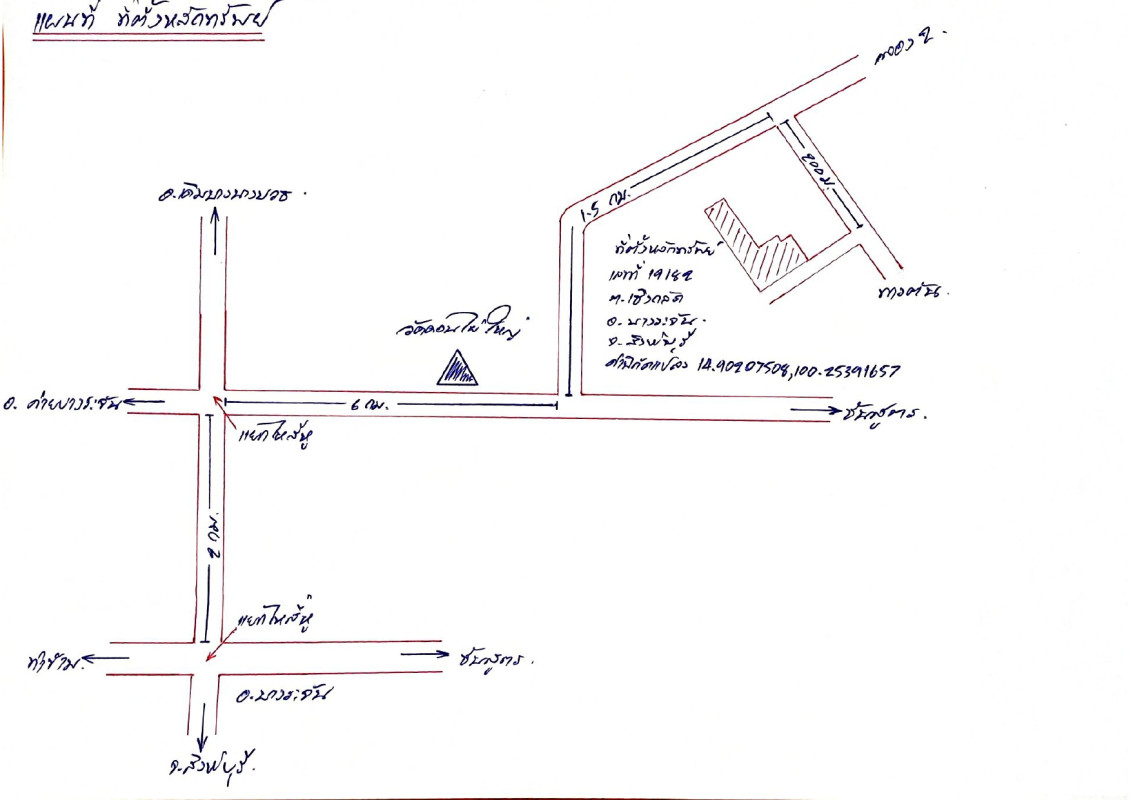 แผนที่ ที่ตั้งหลักทรัพย์
คลอง 2.
200 ม.
1.5 กม.
อ.เดิมบางนางบวช.
ที่ตั้งหลักทรัพย์
เลขที่ 19182
ต.เชิงกลัด
อ.บางระจัน.
จ.สิงห์บุรี
ค่าพิกัดแปลง 14.90207508,100.25391657
ทางตัน.
วัดดอนไผ่ใหญ่
อ. ค่ายบางระจัน
6 กม.
ชันสูตร.
แยกไหล่หู่
2 กม.
แยกไหล่หู่
ท่าข้าม.
ชันสูตร.
อ.บางระจัน
จ.สิงห์บุรี.